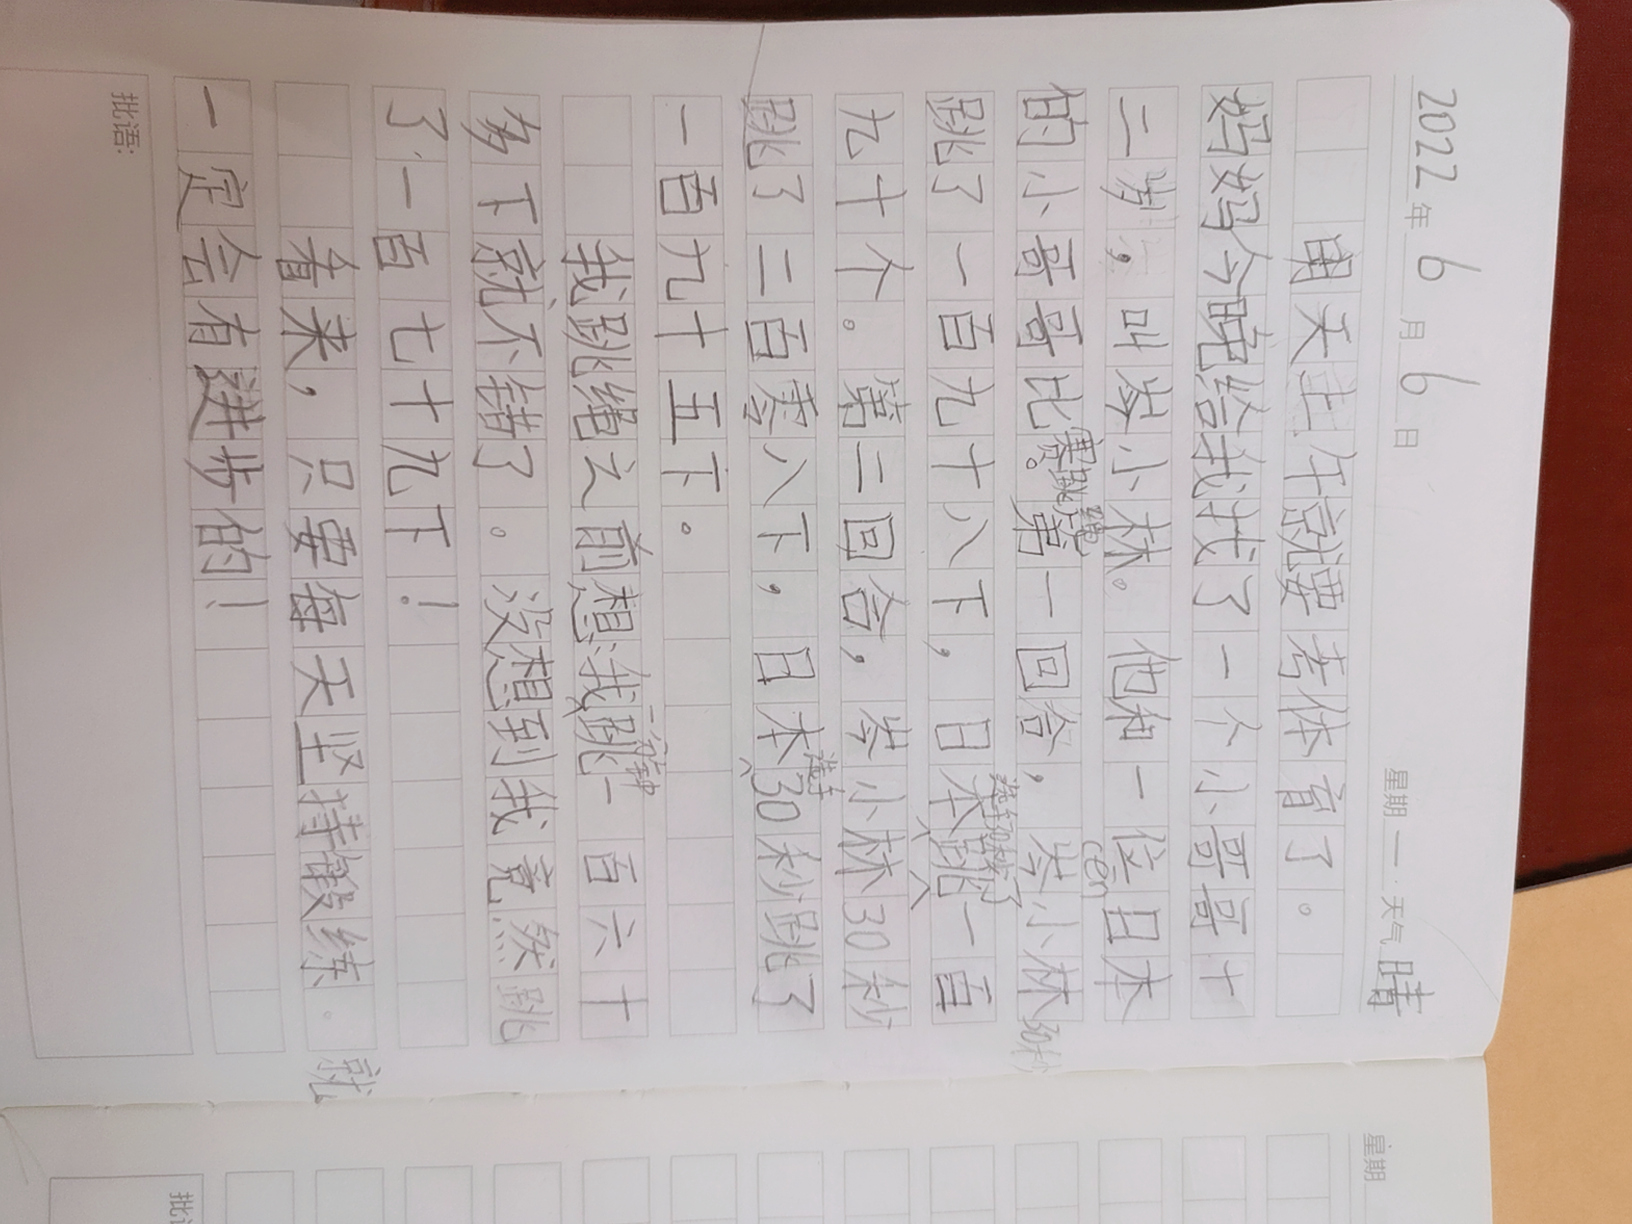 2022年6月6日 星期一 天气晴
明天上午就要考体育了。
妈妈今晚给我找了一个小哥哥十
二岁,叫岑小林。他和一位日本
的小哥哥比赛跳绳。第一回合,岑(cén)小林30秒
跳了一百九十八下,日本选手30秒跳了一百
九十个。第二回合,岑小林30秒
跳了二百零八下,日本选手30秒跳了
一百九十五下。
我跳绳之前想:我一分钟跳一百六十
多下就不错了。没想到我竟然跳
了一百七十九下!
看来,只要每天坚持锻练.就
一定会有进步的!
批语:
星期